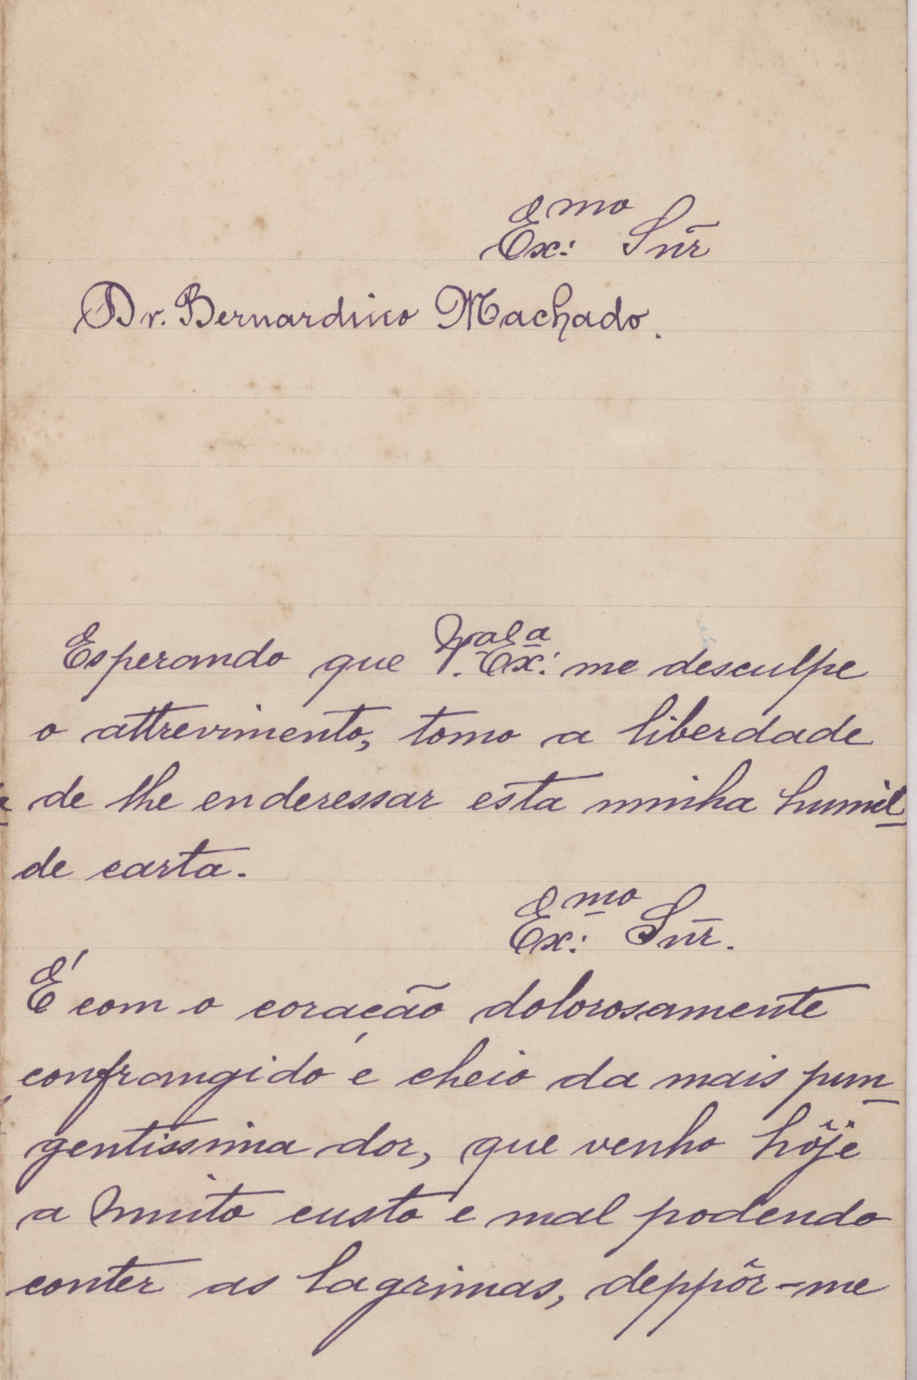 Ex:mo Snr̃
Dr. Bernardino Machado.
Esperando que V.a Ex:a me desculpe
o attrevimento, tomo a liberdade
de lhe enderessar esta minha humil
de carta.
Ex:mo Snr̃.
É com o coração dolorosamente
confrangido e cheio da mais pun
gentissima dor, que venho hôje
a muito custo e mal podendo
conter as lagrimas, deppôr-me